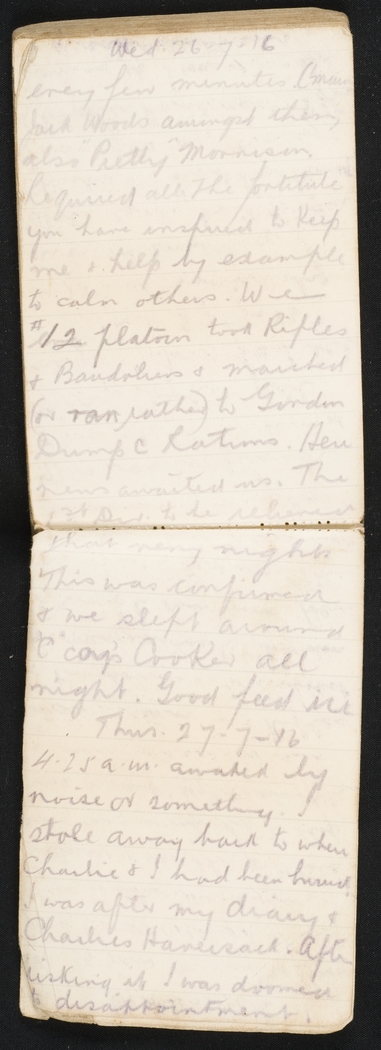 Wed. 26-7-16
every few minutes.
Jack Woods amongst them,
also "Pretty" Morrison.
Required all the fortitude
you have inspired to keep
me & help by example
to calm others. We
#12 platoon took Rifles
& Bandoliers & marched
(or ran, rather) to Gordon
Dump C Rations. Here
news awaited us. The
1st Div. to be relieved
that very night.
This was confirmed
& we slept around
"C" coy's Cooker all
night. Good feed
Thus. 27-7-16
4.25 a.m. awaked by
noise or something. I
stole away back to where
Charlie & I had been buried.
I was after my diary &
Charlies Haversack. After
risking it I was doomed
to disappointment.